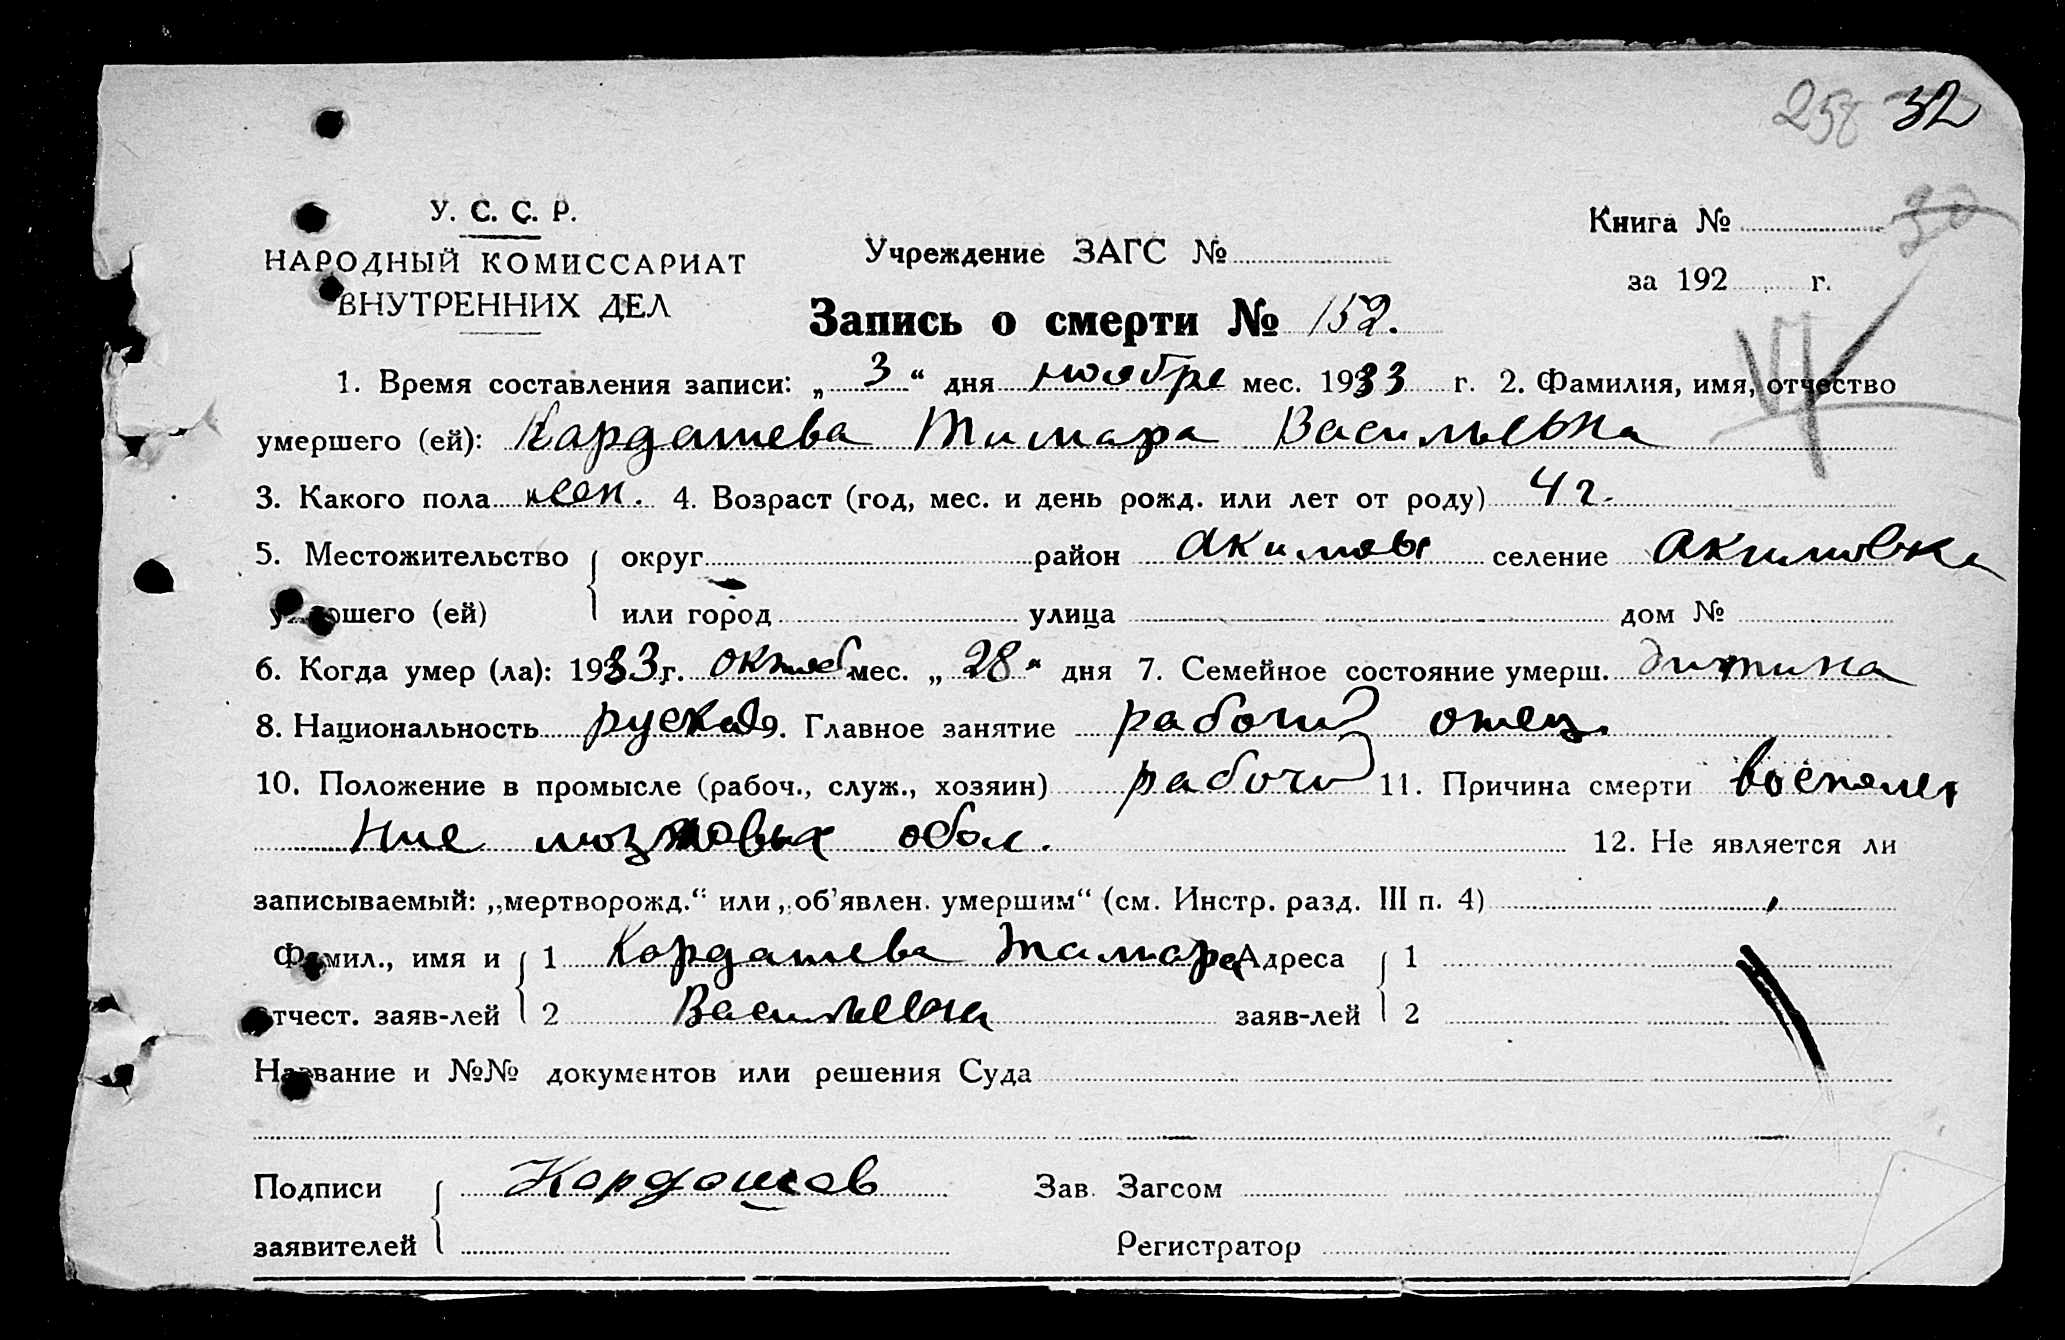 258 32
У. С. С. Р.
НАРОДНЫЙ КОМИССАРИАТ
ВНУТРЕННИХ ДЕЛ
Учреждение ЗАГС №
Книга № 30
за 192 г.
Запись о смерти № 152.
1. Время составления записи: „ 3 “ дня ноября мес. 1933 г. 2. Фамилия, имя, отчество
умершего (ей): Кардашева Тимара Васильевна
3. Какого пола жен. 4. Возраст (год, мес. и день рожд. или лет от роду) 4 г.
5. Местожительство округ район Акимовы селение Акимовка
умершего (ей) или город улица дом №
6. Когда умер (ла): 1933 г. октяб мес. „ 28 “ дня 7. Семейное состояние умерш. дитина
8. Национальность руская 9. Главное занятие рабочий отец.
10. Положение в промысле (рабоч., служ., хозяин) рабочий 11. Причина смерти воспале
ние мозговых обол. 12. Не является ли
записываемый: „мертворожд.“ или „об’явлен. умершим“ (см. Инстр. разд. III п. 4)
Фамил., имя и 1 Кардашева Тамара Адреса 1
отчест. заяв-лей 2 Васильевна заяв-лей 2
Название и №№ документов или решения Суда
Подписи Кордошев Зав. Загсом
заявителей Регистратор